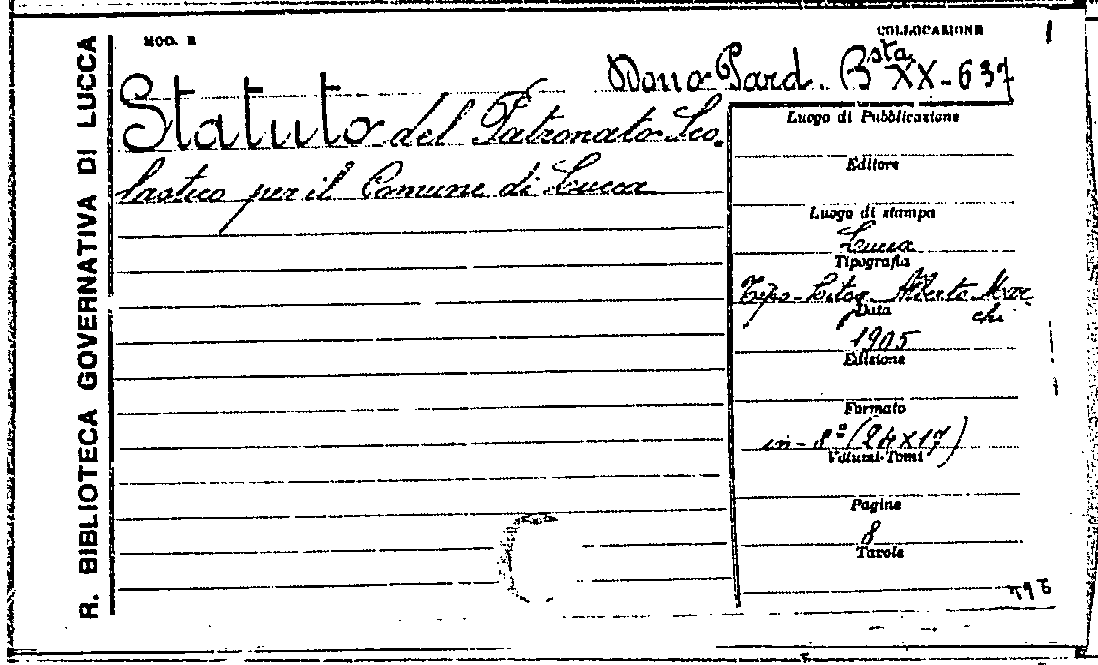 R. BIBLIOTECA GOVERNATIVA DI LUCCA
MOD. E
COLLOCAZIONE
Dono Pard. Bsta XX-637
Statuto del Patronato Sco-
lastico per il Comune di Lucca
Luogo di Pubblicazione
Editore
Luogo di stampa
Lucca
Tipografia
Tipo-Litog. Alberto Mar-
chi
Data
1905
Edizione
Formato
in-8º (24x17)
Volumi-Tomi
Pagine
8
Tavole